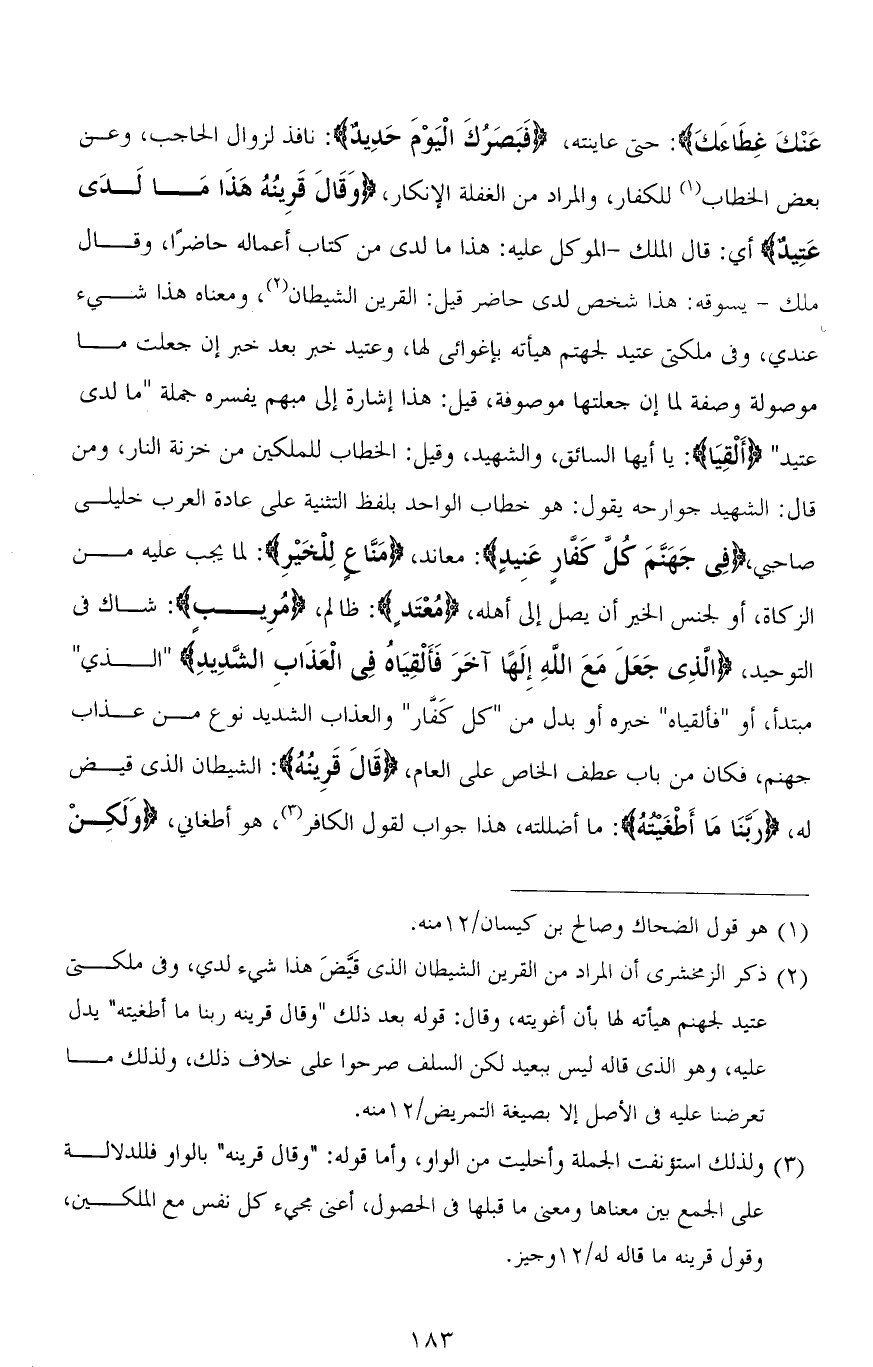 عَنْكَ غِطَاءَكَ﴾: حتى عاينته، ﴿فَبَصَرُكَ الْيَوْمَ حَدِيدٌ﴾: نافذ لزوال الحاجب، وعن
بعض الخطاب(١) للكفار، والمراد من الغفلة الإنكار، ﴿وَقَالَ قَرِينُهُ هَذَا مَا لَدَى
عَتِيدٌ﴾ أي: قال الملك -الموكل عليه: هذا ما لدى من كتاب أعماله حاضرًا، وقال
ملك - يسوقه: هذا شخص لدى حاضر قيل: القرين الشيطان(٢)، ومعناه هذا شيء
عندي، وفى ملكتى عتيد لجهنم هيأته بإغوائى لها، وعتيد خبر بعد خبر إن جعلت ما
موصولة وصفة لما إن جعلتها موصوفة، قيل: هذا إشارة إلى مبهم يفسره جملة "ما لدى
عتيد" ﴿أَلْقِيَا﴾: يا أيها السائق، والشهيد، وقيل: الخطاب للملكين من خزنة النار، ومن
قال: الشهيد جوارحه يقول: هو خطاب الواحد بلفظ التثنية على عادة العرب خليلى
صاحبي،﴿فِى جَهَنَّمَ كُلَّ كَفَّارٍ عَنِيدٍ﴾: معاند، ﴿مَنَّاعٍ لِلْخَيْرِ﴾: لما يجب عليه من
الزكاة، أو لجنس الخير أن يصل إلى أهله، ﴿مُعْتَدٍ﴾: ظالم، ﴿مُرِيبٍ﴾: شاك فى
التوحيد، ﴿الَّذِى جَعَلَ مَعَ اللَّهِ إِلَهًا آخَرَ فَأَلْقِيَاهُ فِى الْعَذَابِ الشَّدِيدِ﴾ "الذي"
مبتدأ، أو "فألقياه" خبره أو بدل من "كل كَفَّار" والعذاب الشديد نوع من عذاب
جهنم، فكان من باب عطف الخاص على العام، ﴿قَالَ قَرِينُهُ﴾: الشيطان الذى قيض
له، ﴿رَبَّنَا مَا أَطْغَيْتُهُ﴾: ما أضللته، هذا جواب لقول الكافر(٣)، هو أطغاني، ﴿وَلَكِنْ
(١) هو قول الضحاك وصالح بن كيسان/١٢منه.
(٢) ذكر الزمخشرى أن المراد من القرين الشيطان الذى قَيَّضَ هذا شيء لدي، وفى ملكتى
عتيد لجهنم هيأته لها بأن أغويته، وقال: قوله بعد ذلك "وقال قرينه ربنا ما أطغيته" يدل
عليه، وهو الذى قاله ليس ببعيد لكن السلف صرحوا على خلاف ذلك، ولذلك ما
تعرضنا عليه فى الأصل إلا بصيغة التمريض/١٢منه.
(٣) ولذلك استؤنفت الجملة وأخليت من الواو، وأما قوله: "وقال قرينه" بالواو فللدلالة
على الجمع بين معناها ومعنى ما قبلها فى الحصول، أعنى مجيء كل نفس مع الملكين،
وقول قرينه ما قاله له/١٢وجيز.
١٨٣